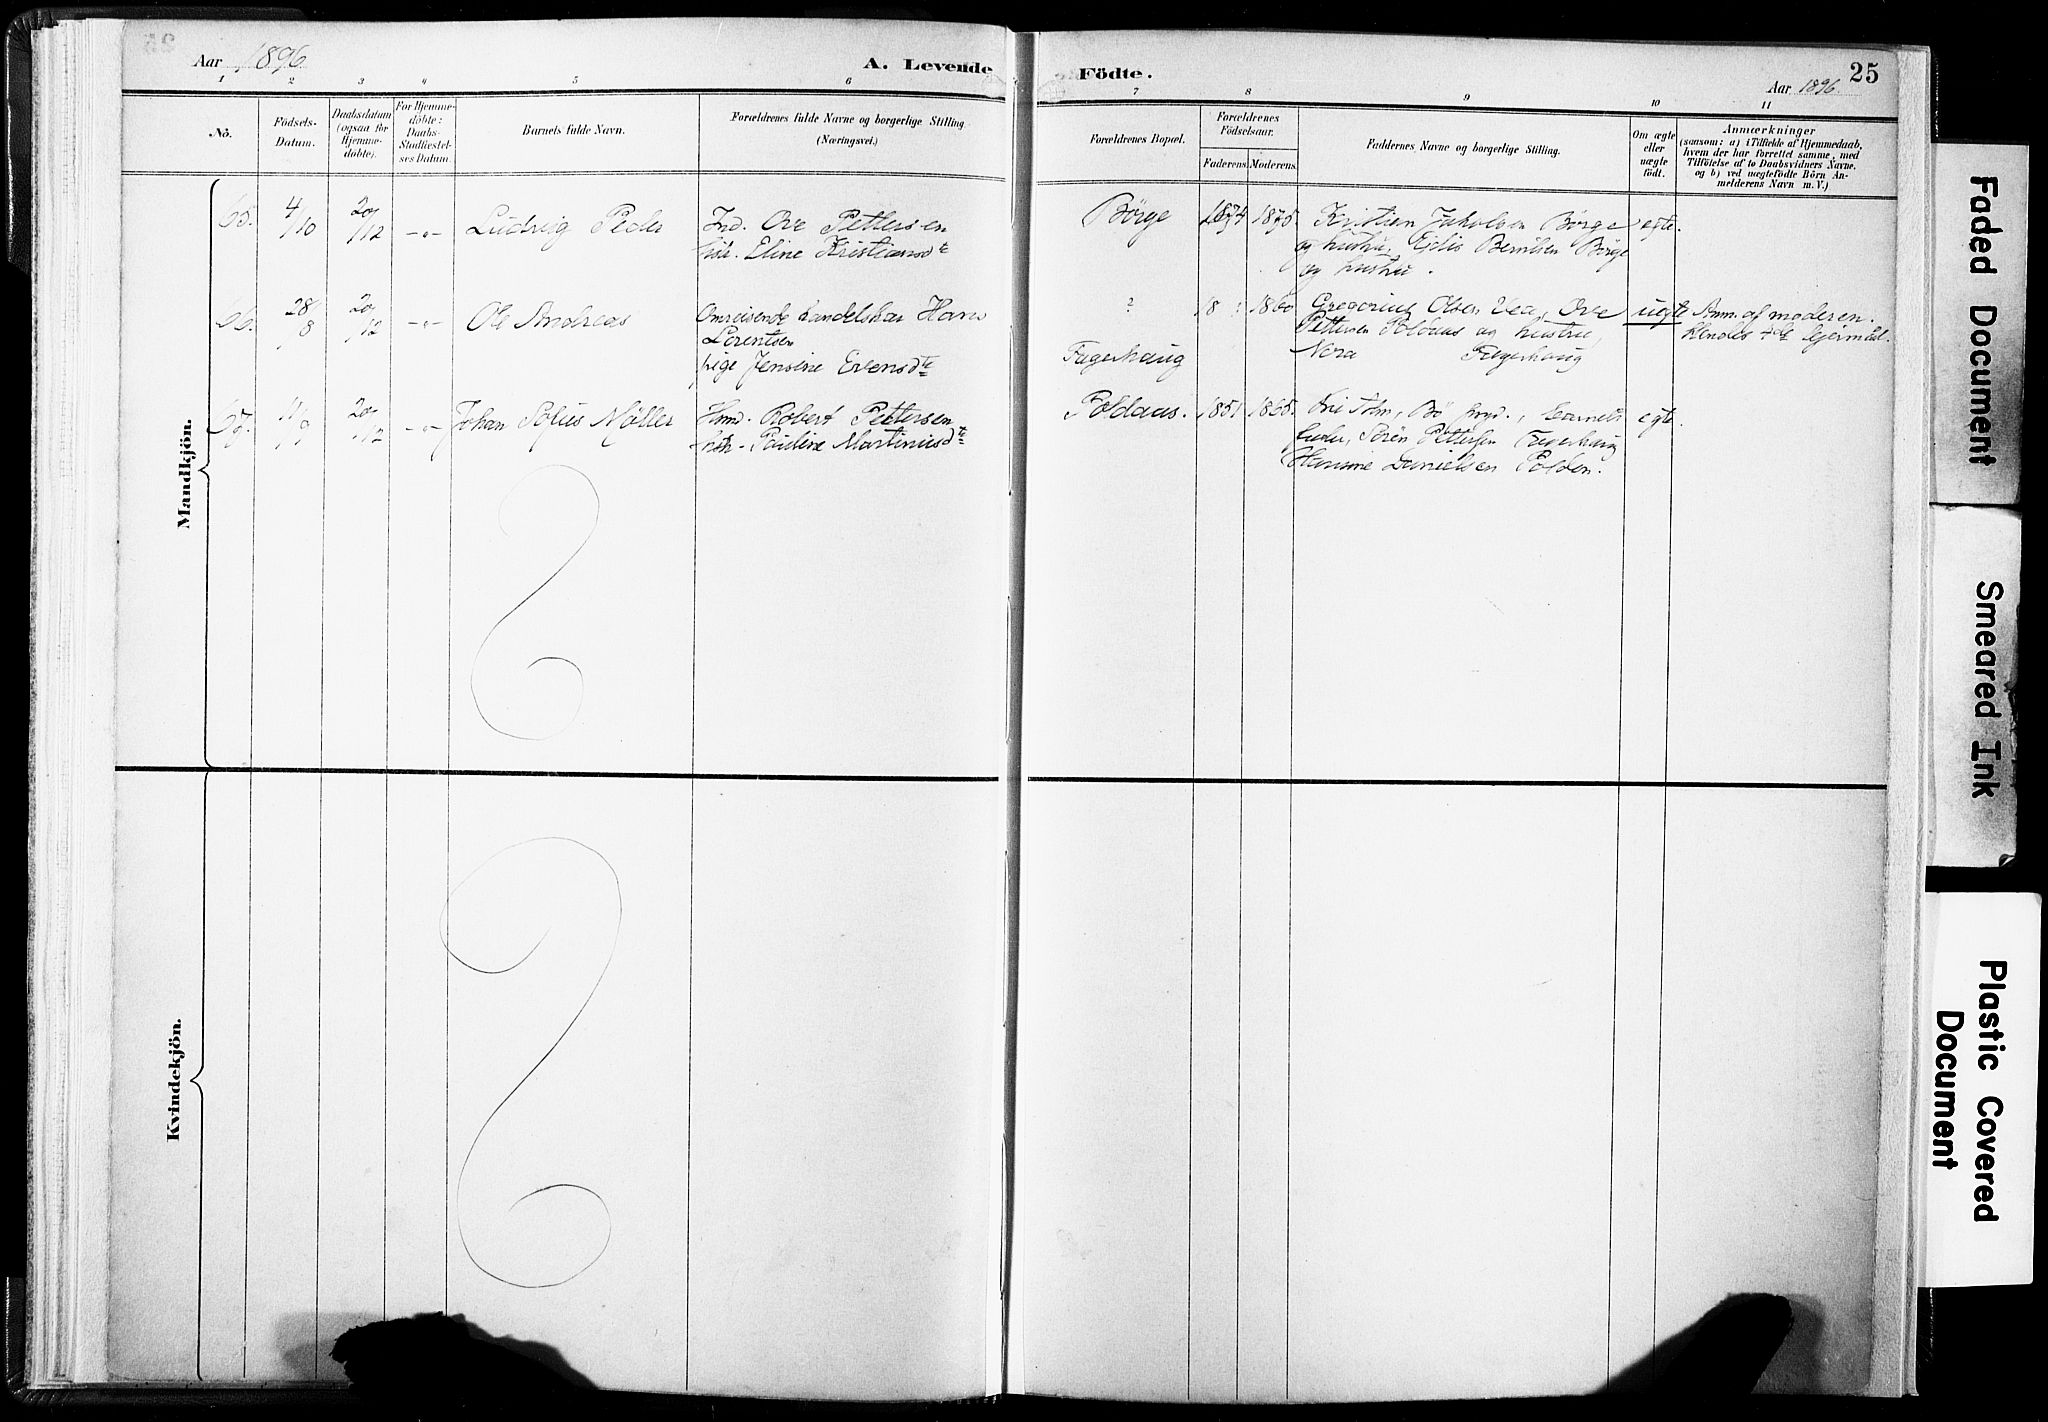 Aar 1896
A. Levende Födte.
25
Aar 1896
1 2 3 4 5 6 7 8 9 10 11
Nö.
Födsels-
Datum.
Daabsdatum
(ogsaa for
Hjemme-
döbte).
For Hjemme-
döbte:
Daabs-
Stadfæstel-
ses Datum.
Barnets fulde Navn.
Forældrenes fulde Navne og borgerlige Stilling
(Næringsvei.)
Forældrenes Bopæl.
Forældrenes
Födselsaar.
Faderens. Moderens.
Faddernes Navne og borgerlige Stilling.
Om ægte
eller
uægte
födt.
Anmærkninger
(saasom: a) i Tilfælde af Hjemmedaab,
hvem der har forrettet samme, med
Tilföielse af to Daabsvidners Navne.
og b) ved uægtefödte Börn An-
melderens Navn m. V.)
Mandkjön.
65. 4/10 20/12 -"- Ludvig Peder
Ind. Ove Pettersen
hstr. Eline Kristiansdtr
Börge 1874 1875.
Kristian Jakobsen Börge
og hustru, Berntsen Börge
og hustru.
egte.
66. 28/8 20/12 -"- Ole Andreas
Omreisende handelskar Hans
Lorentsen
pige Jensine Evensdtr
? Fagerhaug
18 ? 1860
Gregorius Olsen Vea, Ove
Pettersen Poldaas og hustru,
Nora Fagerhaug
uegte
Anm. af moderen.
Hendes 4de leiermaal.
67. 11/9 20/12 -"- Johan Sofius Möller
Hmd. Robert Pettersen
hstr. Pauline Martinusdtr
Poldaas. 1851 1865.
Bö barnets
fader, Sören Pettersen Fagerhaug
Hansine Danielsen Polden.
egte.
Kvindekjön.
Faded Document
Smeared Ink
Plastic Covered
Document